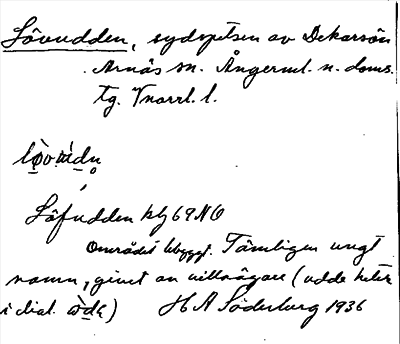 Lövudden, sydspetsen av Dekarsön
Arnäs sn. Ångerml. n. doms.
tg. Vnorrl. l.
Löfudden blz 69 NO
Området bbyggt. Tämligen ungt
namn, givet av villaägare (udde heter
i dial.) H A Söderberg 1936